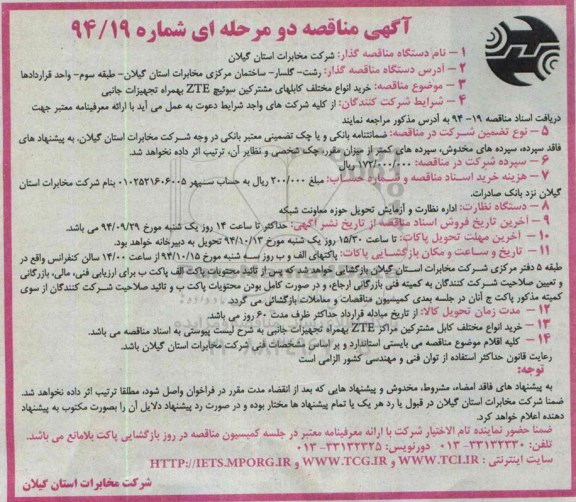 آگهی مناقصه دو مرحله ای شماره ۹۴/۱۹
۱ – نام دستگاه مناقصه گذار: شرکت مخابرات استان گیلان
۲ – آدرس دستگاه مناقصه گذار: رشت- گلسار- ساختمان مرکزی مخابرات استان گیلان- طبقه سوم- واحد قراردادها
۳ – موضوع مناقصه: خرید انواع مختلف کابلهای مشترکین سوئیچ ZTE بهمراه تجهیزات جانبی
۴ – شرایط شرکت کنندگان: از کلیه شرکت های واجد شرایط دعوت به عمل می آید با ارائه معرفینامه معتبر جهت
دریافت اسناد مناقصه ۱۹- ۹۴ به آدرس مذکور مراجعه نمایند
۵ – نوع تضمین شرکت در مناقصه: ضمانتنامه بانکی و یا چک تضمینی معتبر بانکی در وجه شرکت مخابرات استان گیلان. به پیشنهاد های
فاقد سپرده، سپرده های مخدوش، سپرده های کمتر از میزان مقرر، چک شخصی و نظایر آن، ترتیب اثر داده نخواهد شد.
۶ – سپرده شرکت در مناقصه: ۱۷۲/۰۰۰/۰۰۰ ریال
۷ – هزینه خرید اسناد مناقصه و شماره حساب: مبلغ ۳۰۰/۰۰۰ ریال به حساب سپهر ۰۱۰۲۵۲۱۶۰۶۰۰۵ بنام شرکت مخابرات استان
گیلان نزد بانک صادرات.
۸ – دستگاه نظارت: اداره نظارت و آزمایش تحویل حوزه معاونت شبکه
۹ – آخرین تاریخ فروش اسناد مناقصه از تاریخ نشر آگهی: حداکثر تا ساعت ۱۴ روز یک شنبه مورخ ۹۴/۰۹/۲۹ می باشد.
۱۰ – آخرین مهلت تحویل پاکات: تا ساعت ۱۵/۳۰ روز یک شنبه مورخ ۹۴/۱۰/۱۳ تحویل به دبیرخانه خواهد بود.
۱۱ – تاریخ و ساعت و مکان بازگشایی پاکات: پاکتهای الف و ب روز سه شنبه مورخ ۹۴/۱۰/۱۵ از ساعت ۱۴/۰۰ سالن کنفرانس واقع در
طبقه ۵ دفتر مرکزی شرکت مخابرات استان گیلان بازگشایی خواهد شد که پس از تائید محتویات پاکت الف پاکت ب برای ارزیابی فنی، مالی، بازرگانی
و تعیین صلاحیت شرکت کنندگان به کمیته فنی بازرگانی ارجاع، و در صورت کامل بودن محتویات پاکت ب و تائید صلاحیت شرکت کنندگان از سوی
کمیته مذکور پاکت ج آنان در جلسه بعدی کمیسیون مناقصات و معاملات بازگشائی می گردد.
۱۲ – مدت زمان تحویل کالا: از تاریخ مبادله قرارداد حداکثر ظرف مدت ۶۰ روز می باشد.
۱۳ – خرید انواع مختلف کابل مشترکین مراکز ZTE بهمراه تجهیزات جانبی به شرح لیست پیوستی به اسناد مناقصه می باشد.
۱۴ – کلیه اقلام موضوع مناقصه می بایستی استاندارد و بر اساس مشخصات فنی شرکت مخابرات استان گیلان باشد.
رعایت قانون حداکثر استفاده از توان فنی و مهندسی کشور الزامی است
توجه:
به پیشنهاد های فاقد امضاء، مشروط، مخدوش و پیشنهاد هایی که بعد از انقضاء مدت مقرر در فراخوان واصل شود، مطلقا ترتیب اثر داده نخواهد شد.
ضمنا شرکت مخابرات استان گیلان در قبول یا رد هر یک یا تمام پیشنهاد ها مختار بوده و در صورت رد پیشنهاد دلایل آن را بصورت مکتوب به پیشنهاد
دهنده اعلام خواهد کرد.
ضمنا حضور نماینده تام الاختیار شرکت با ارائه معرفینامه معتبر در جلسه کمیسیون مناقصه در روز بازگشایی پاکت بلامانع می باشد.
تلفن: ۳۳۱۳۲۲۳۰-۰۱۳ دورنویس: ۳۳۱۳۲۲۲۵-۰۱۳
سایت اینترنتی : WWW.TCI.IR و WWW.TCG.IR و HTTP://IETS.MPORG.IR
شرکت مخابرات استان گیلان